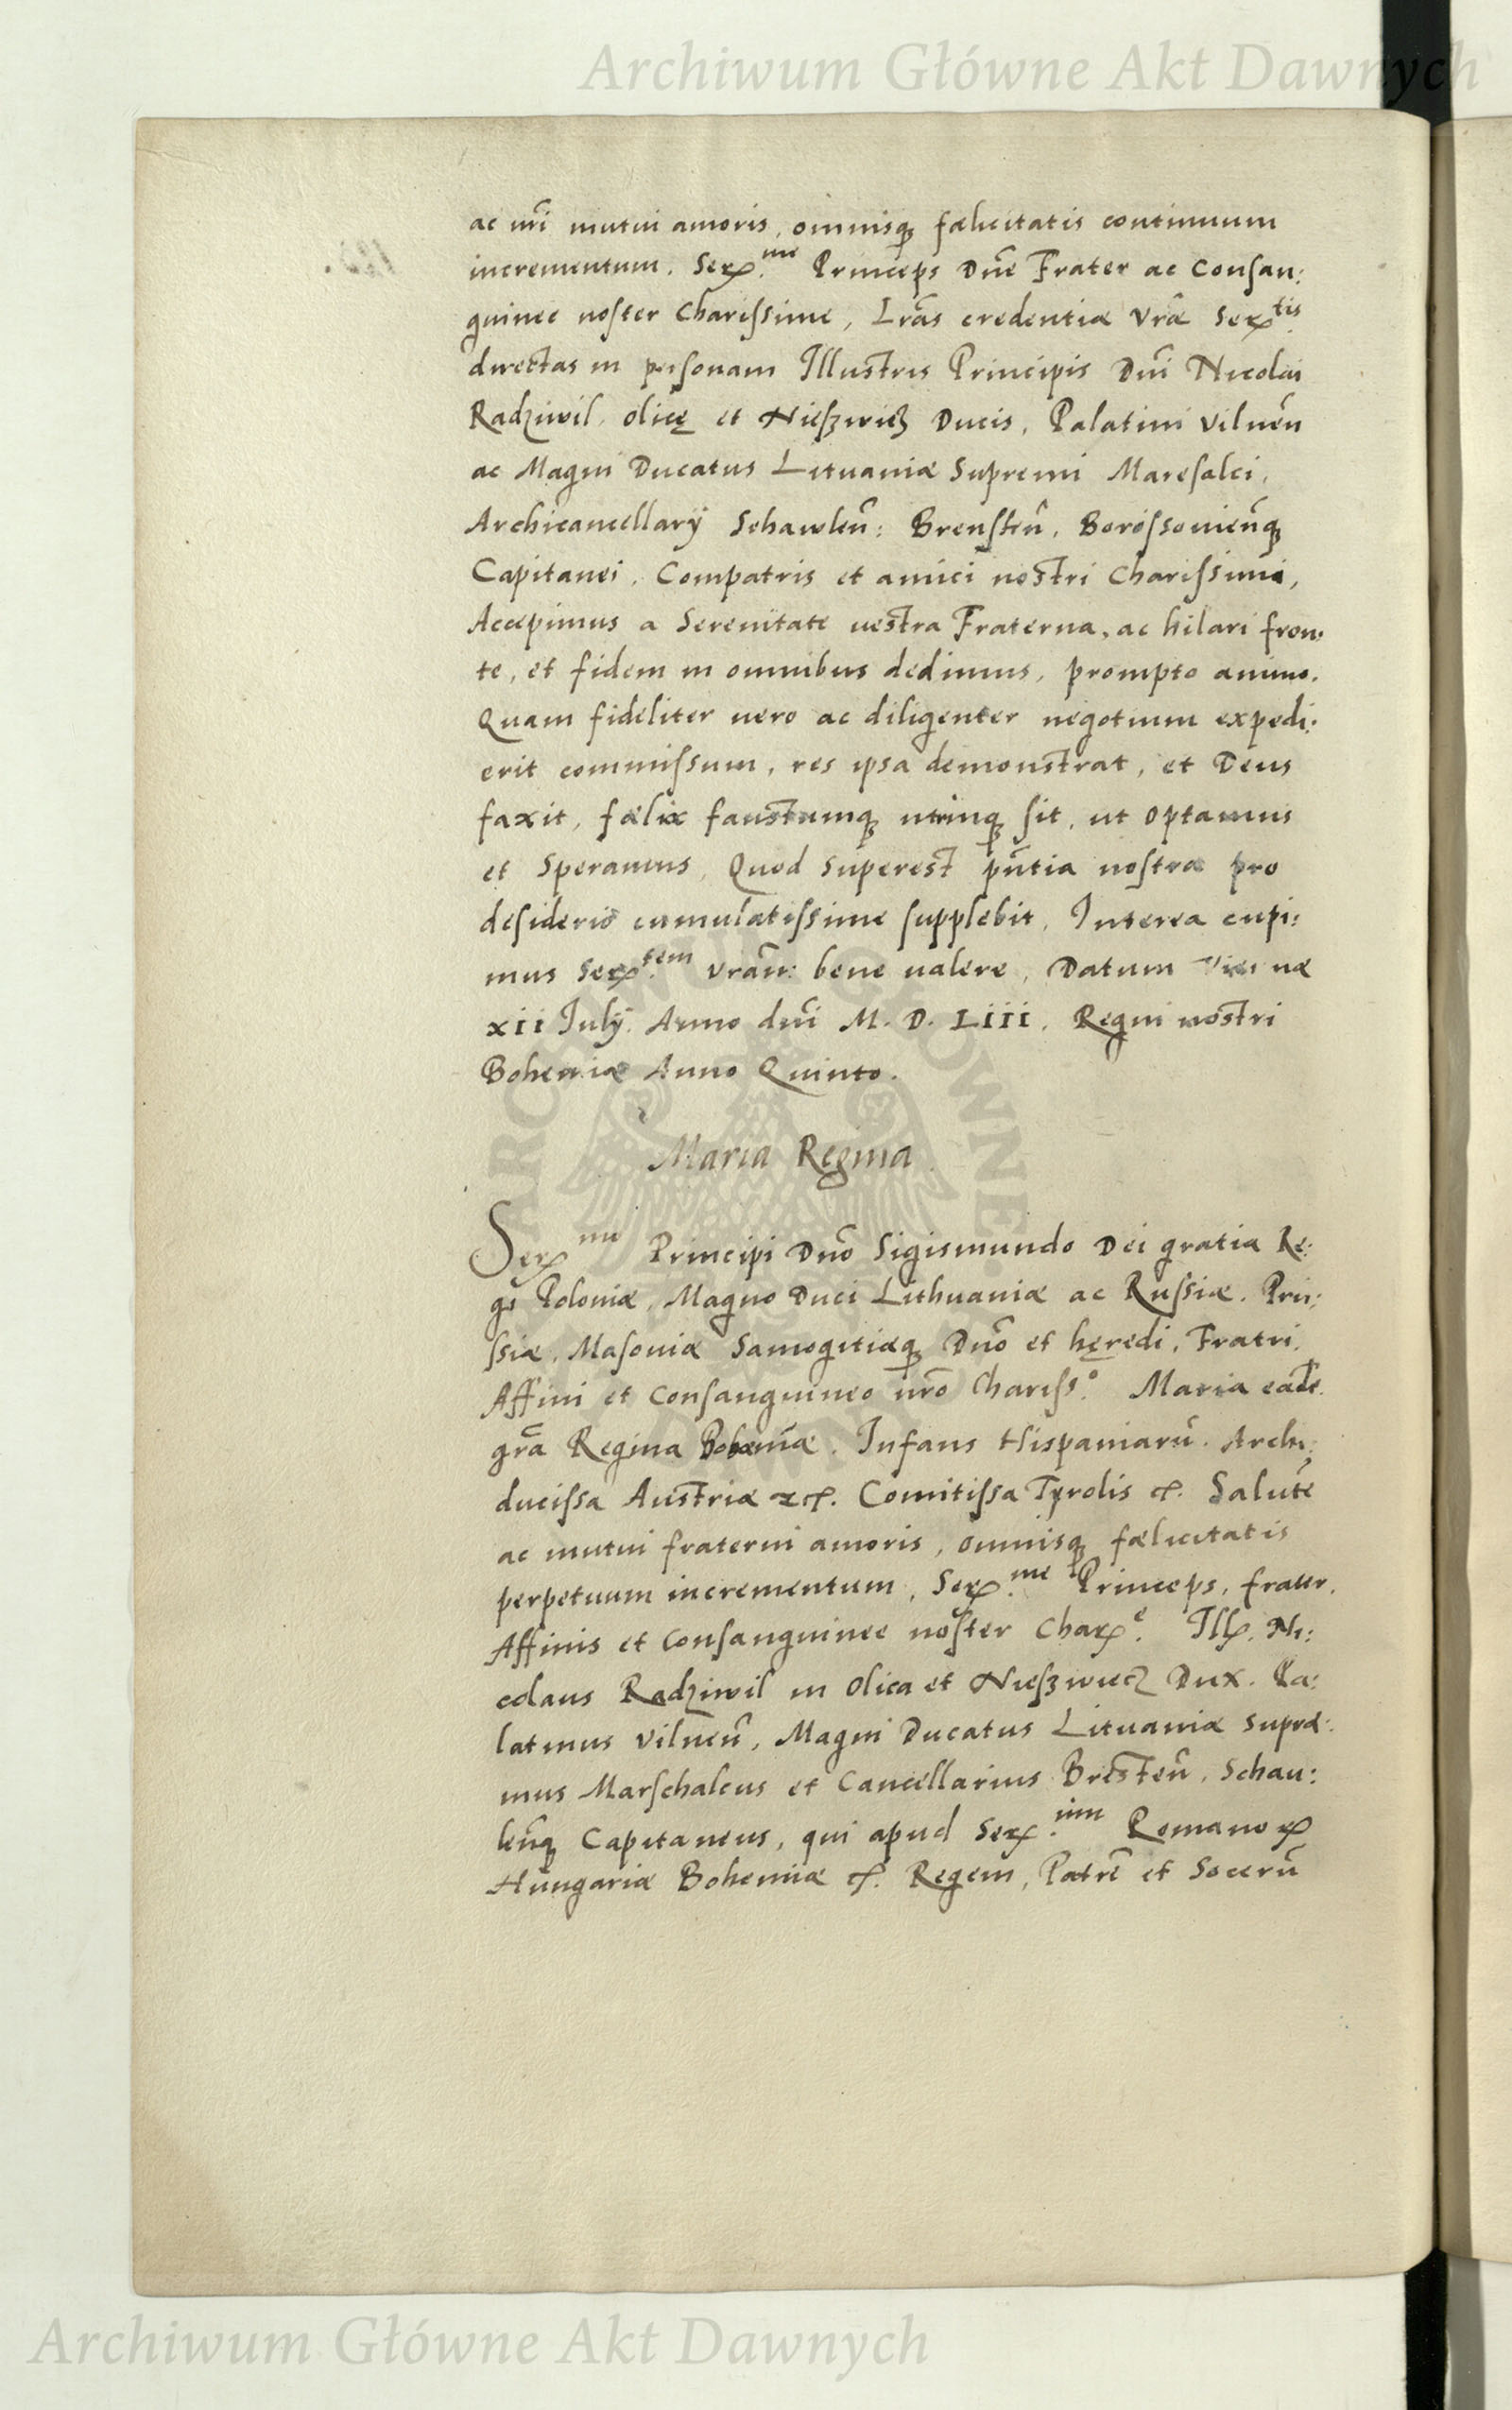 Archiwum Główne Akt Dawnych
ac nr̃i mutui amoris, omnisq; fælicitatis continuum
incrementum. Ser.me Princeps Dñe Frater ac Consan:
guinee noster Charissime, Lr̃as credentiæ Vr̃æ Ser.tis
directas in personam Illustris Principis Dñi Nicolai
Radziwil, olicę et Nieszwicz Ducis, Palatini Vilneñ
ac Magni Ducatus Lituaniæ Supremi Maresalci,
Archicancellarÿ Schawleñ: Brensteñ, Borissovieñq;
Capitanei, Compatris et amici nostri Charissimi,
Accepimus a Serenitate vestra Fraterna, ac hilari fron:
te, et fidem in omnibus dedimus, prompto animo.
Quam fideliter vero ac diligenter negotium expedi:
erit commissum, res ipsa demonstrat, et Deus
faxit, fælix faustumq; utrinq; sit, ut optamus
et Speramus, Quod superest pñtia nostra pro
desiderio cumulatissime supplebit, Interea cupi:
mus Ser.tem Vr̃am: bene valere, Datum Viennæ
xii Julÿ. Anno dñi M. D. Liii. Regni nostri
Bohemiæ Anno Quinto.
Maria Regina
Ser.mo Principi Dño Sigismundo Dei gratia Re:
gi Poloniæ, Magno Duci Lithuaniæ ac Russiæ, Pru:
ssiæ, Masoviæ Samogitiæq; Dño et hęredi, Fratri,
Affini et Consanguineo nr̃o Chariss.o Maria eade
gr̃a Regina Bohemiæ. Infans Hispaniarũ. Archi:
ducissa Austriæ etc. Comitissa Tyrolis etc. Salutẽ
ac mutui fraterni amoris, omnisq; fælicitatis
perpetuum incrementum, Ser.me Princeps, frater,
Affinis et Consanguinee noster Char.e Ill. Ni:
colaus Radziwil in Olica et Nieszwiecz Dux. Pa:
latinus Vilneñ, Magni Ducatus Lituaniæ supræ:
mus Marschalcus et Cancellarius Bresteñ, Schau:
leñq; Capitaneus, qui apud Ser.mum Romanor
Hungariæ Bohemiæ etc. Regem, Patrẽ et Socerũ
Archiwum Główne Akt Dawnych